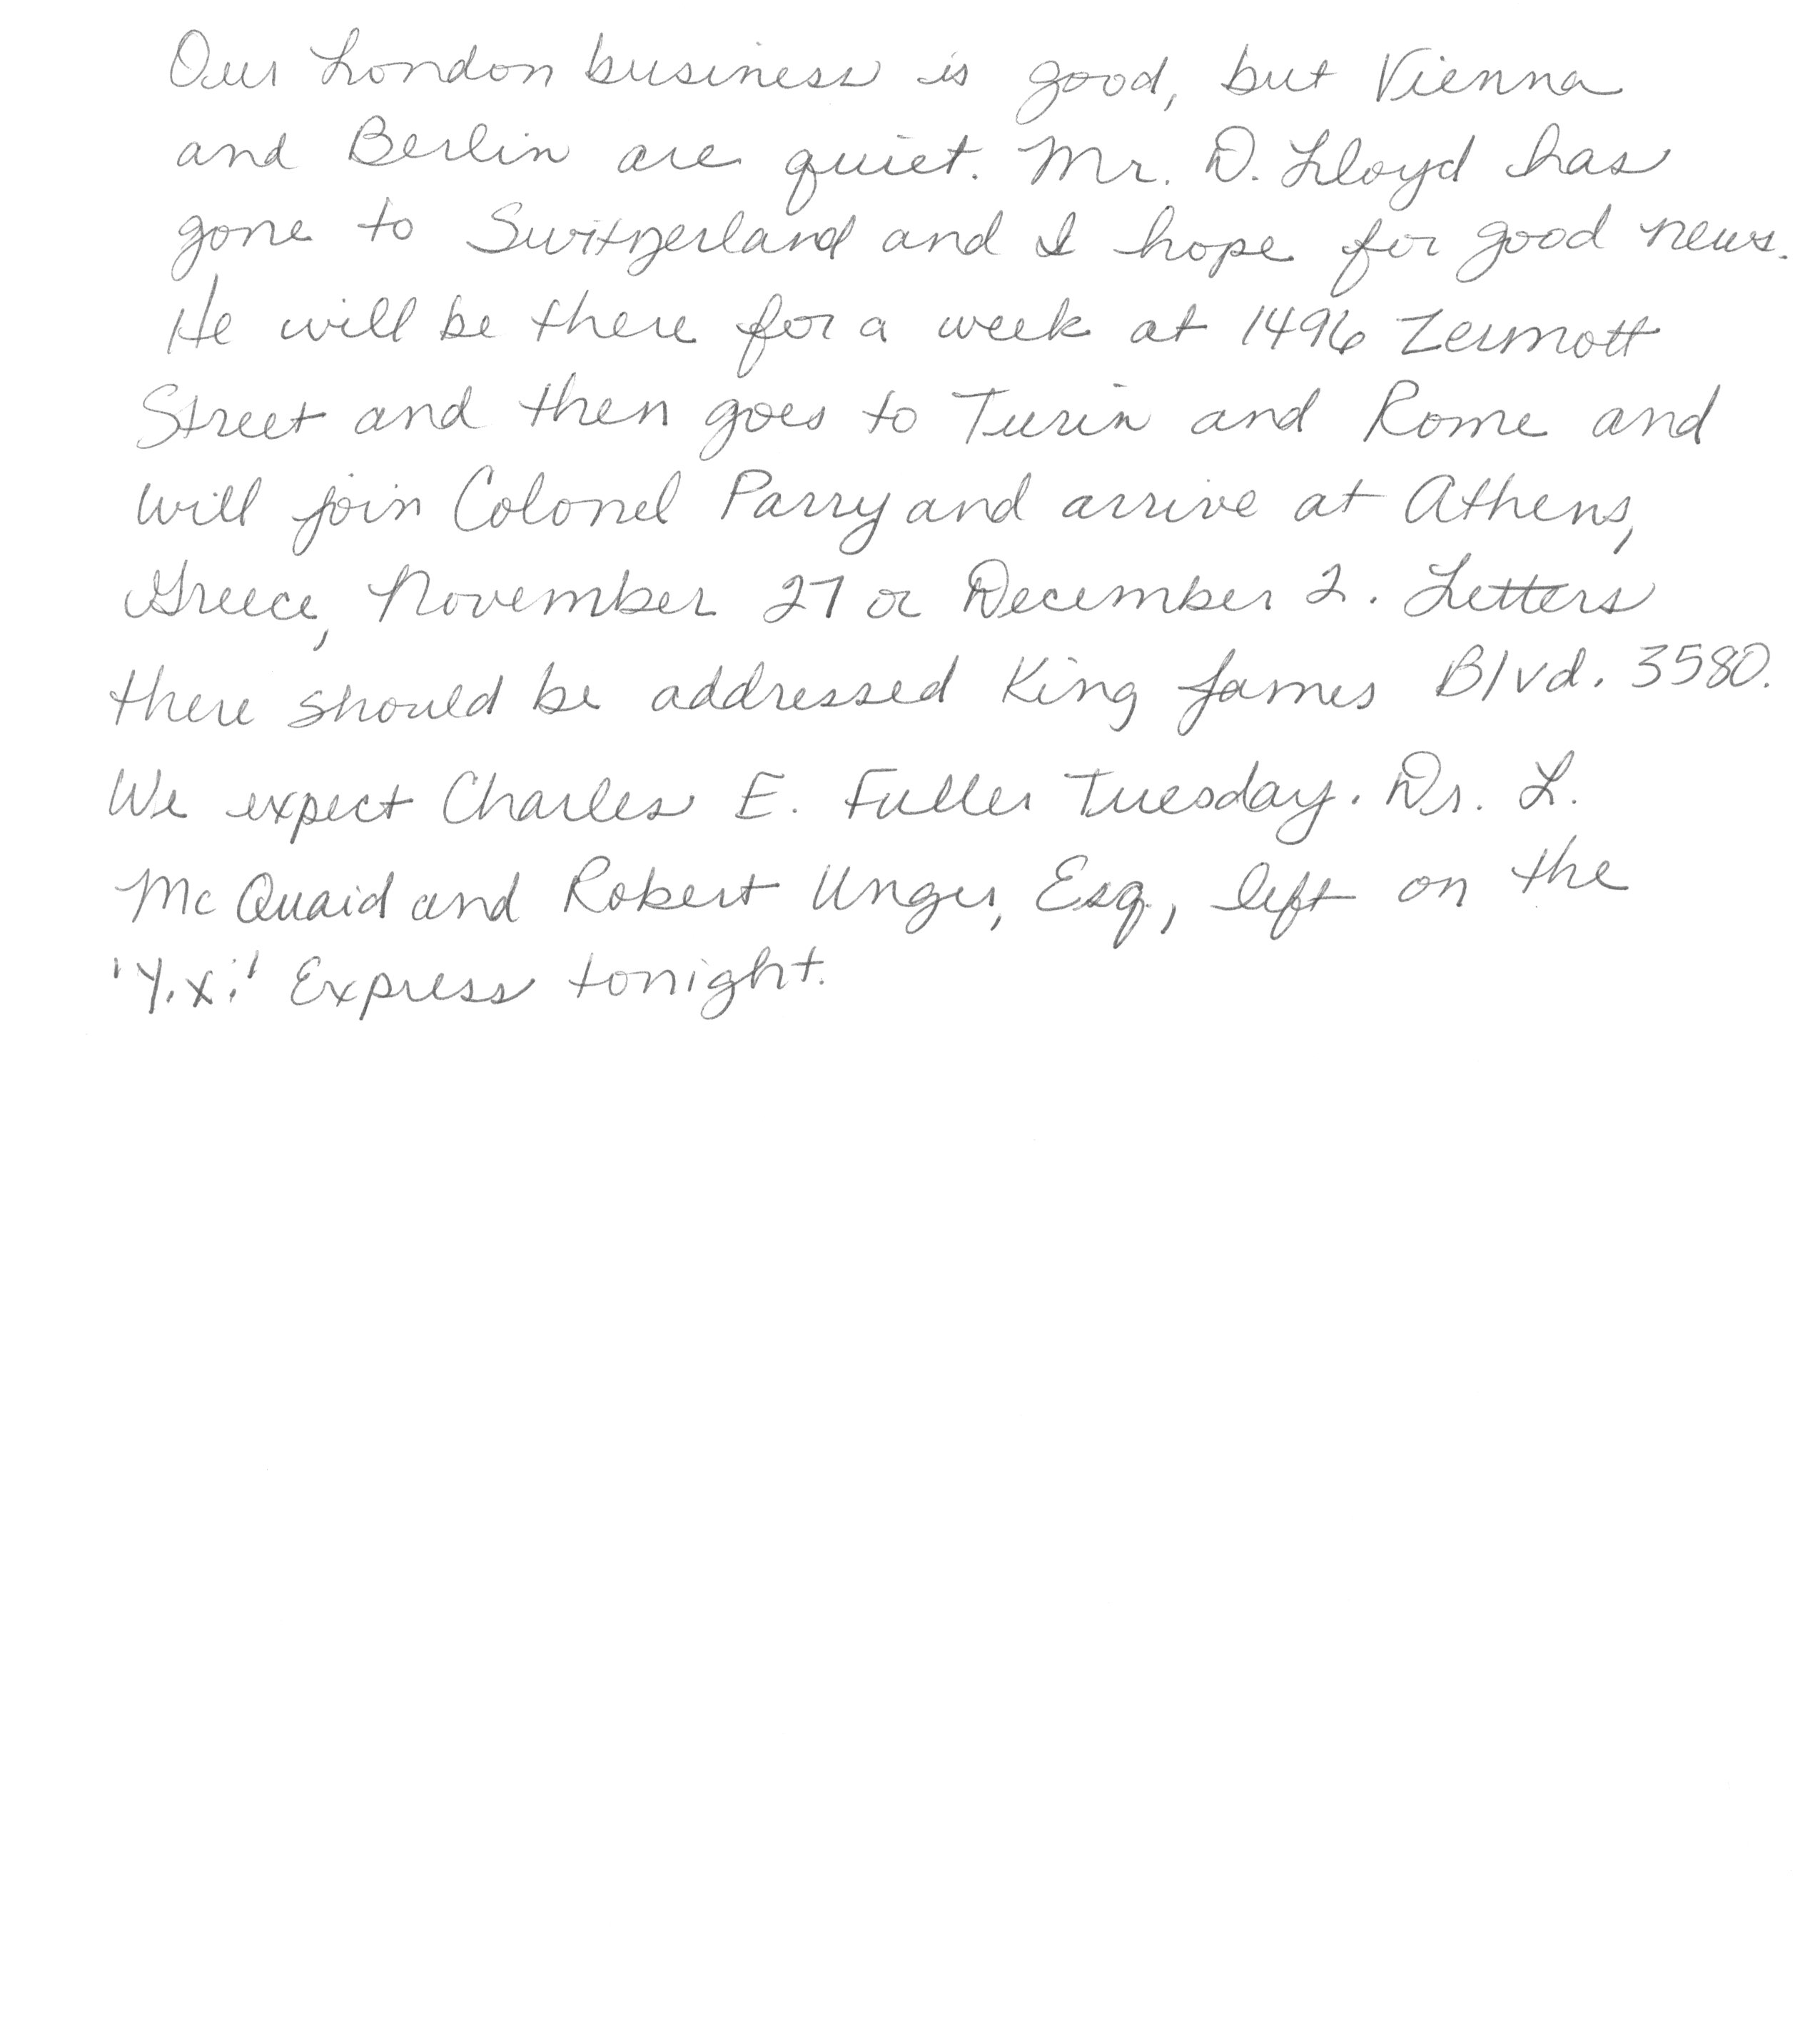 Our London business is good, but Vienna
and Berlin are quiet. Mr. D. Lloyd has
gone to Switzerland and I hope for good news.
He will be there for a week at 1496 Zermott
Street and then goes to Turin and Rome and
will join Colonel Parry and arrive at Athens,
Greece, November 27 or December 2. Letters
there should be addressed King James Blvd. 3580.
We expect Charles E. Fuller Tuesday. Dr. L.
McQuaid and Robert Unger, Esq., left on the
'Y.X.' Express tonight.